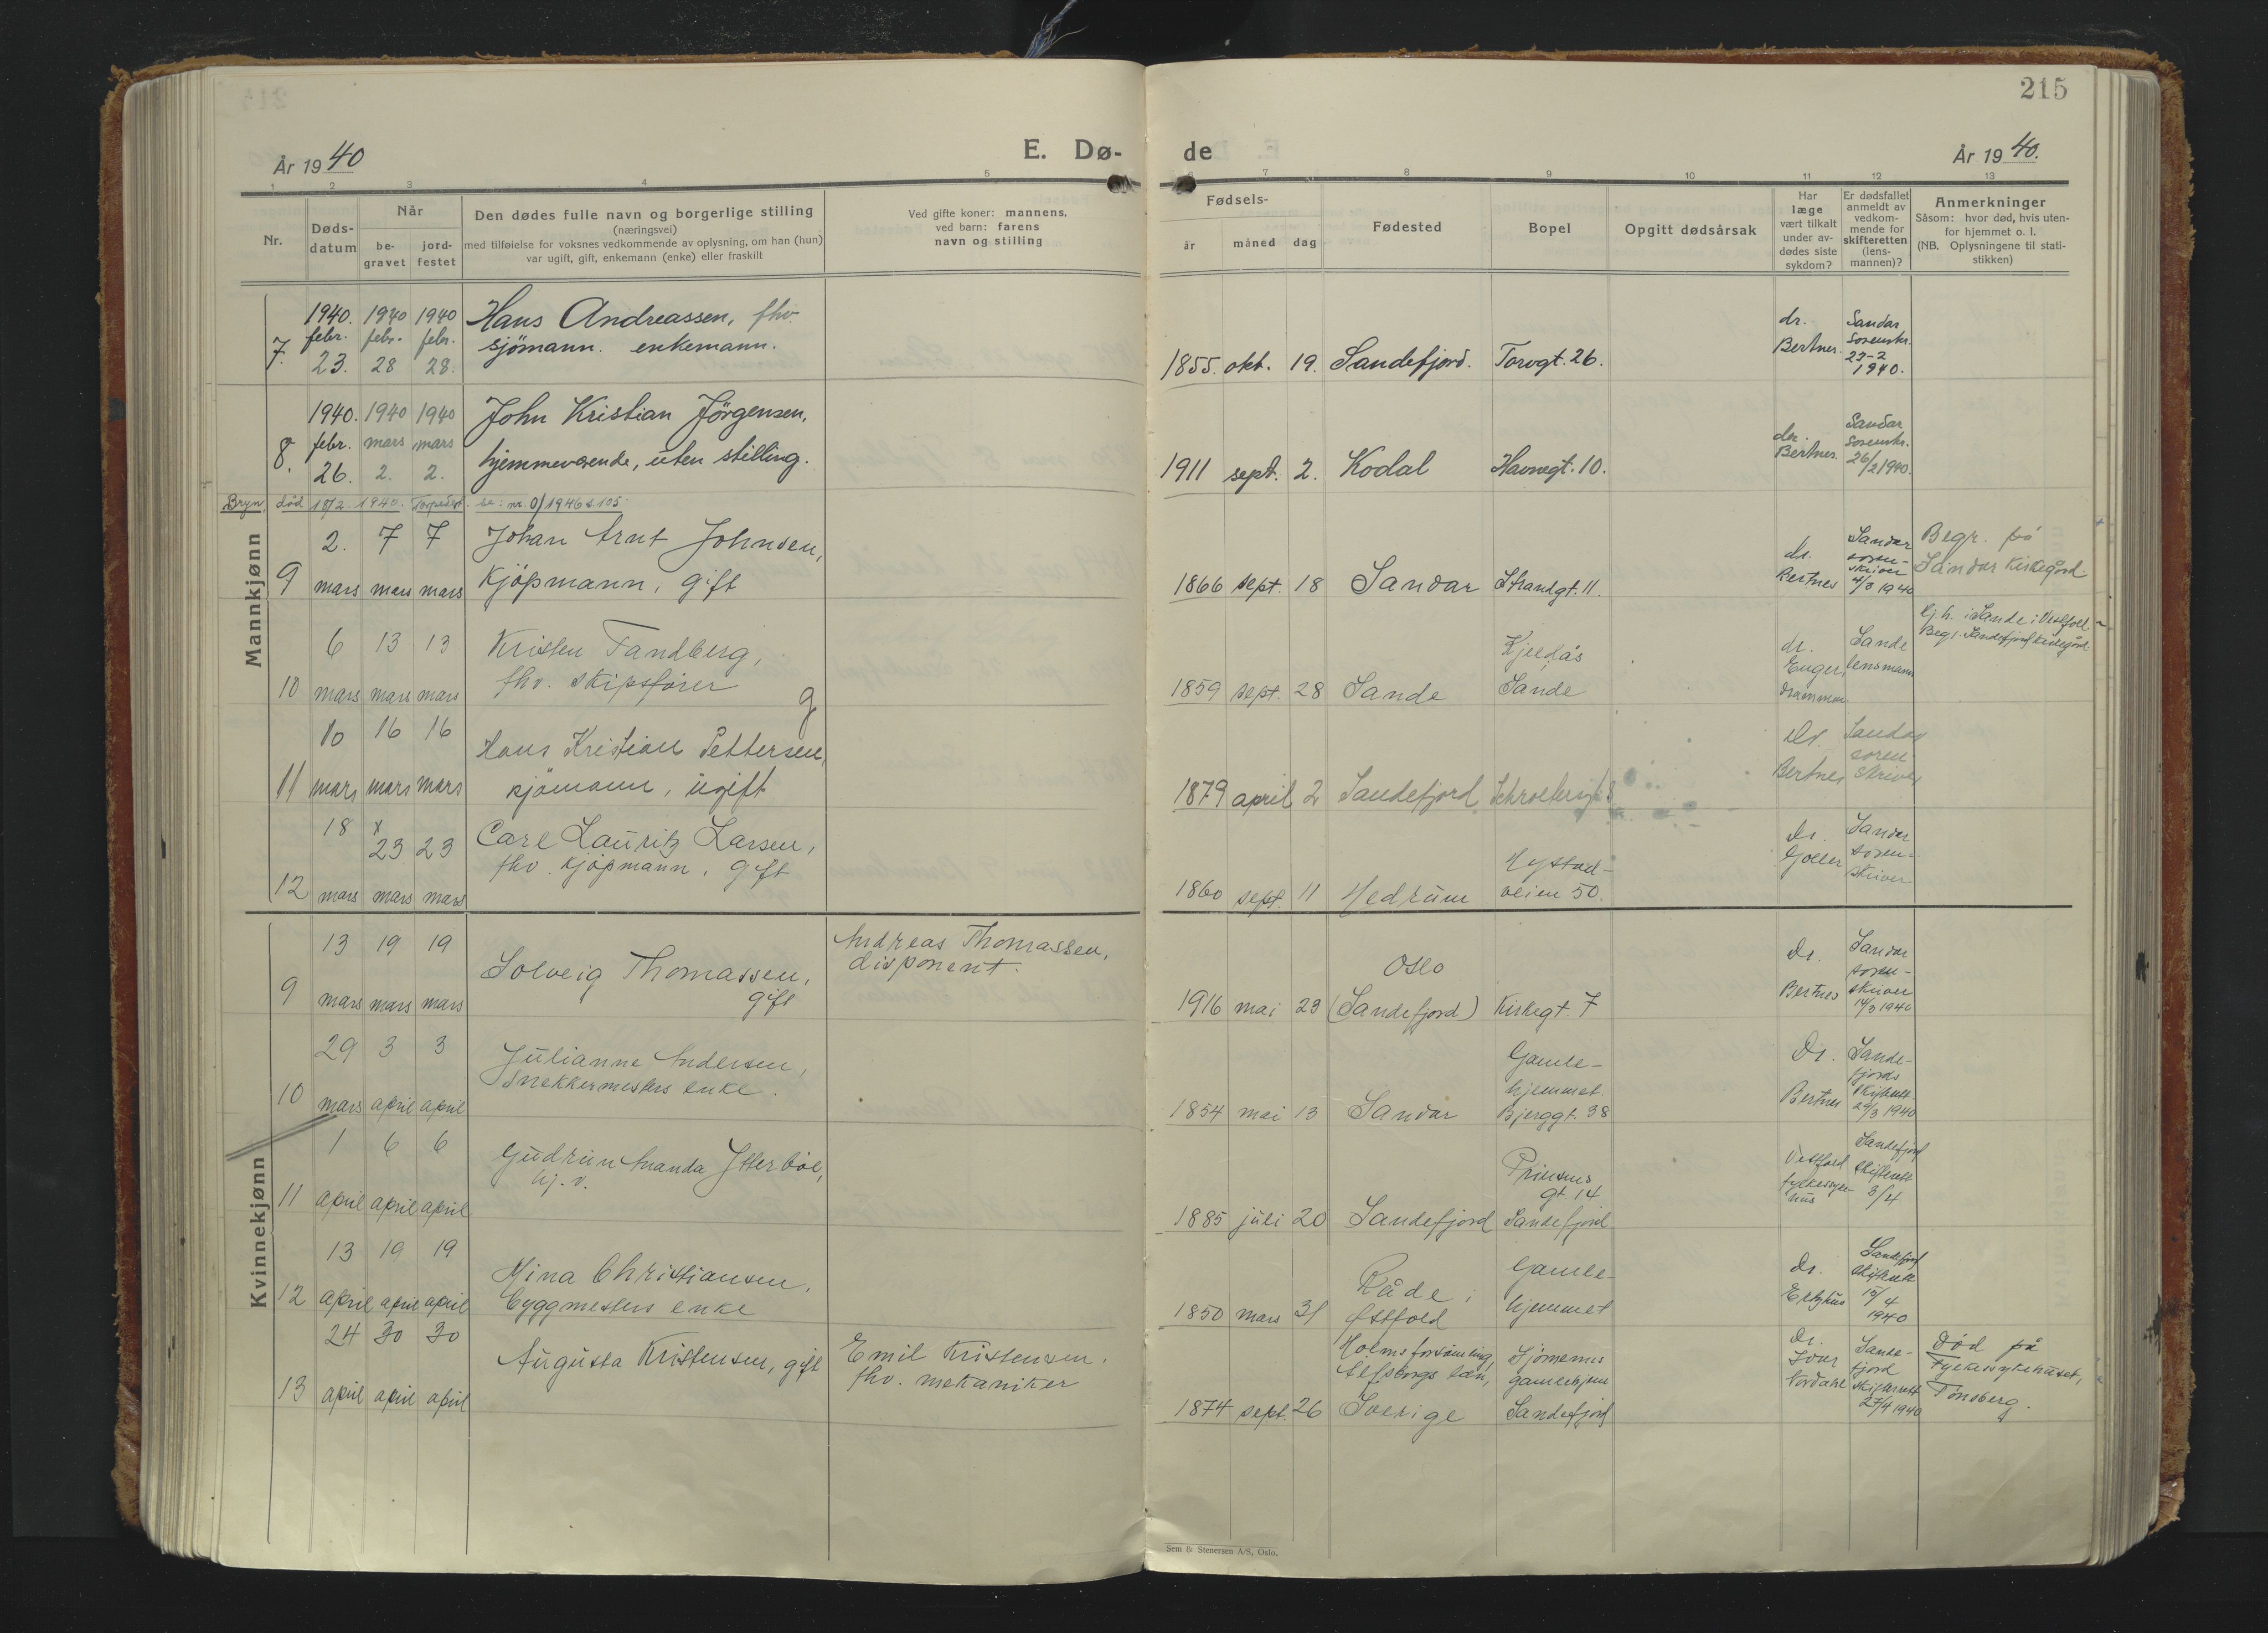 215
År 1940
E. Dø-
de
År 1940.
1 2 3 4 5 6 7 8 9 10 11 12 13
Nr.
Døds-
datum
Når
be-
gravet
jord-
festet
Den dødes fulle navn og borgerlige stilling
(næringsvei)
med tilføielse for voksnes vedkommende av oplysning, om han (hun)
var ugift, gift, enkemann (enke) eller fraskilt
Ved gifte koner: mannens,
ved barn: farens
navn og stilling
Fødsels-
år måned dag
Fødested
Bopel
Opgitt dødsårsak
Har
læge
vært tilkalt
under av-
dødes siste
sykdom?
Er dødsfallet
anmeldt av
vedkom-
mende for
skifteretten
(lens-
mannen)?
Anmerkninger
Såsom: hvor død, hvis uten-
for hjemmet o. l.
(NB. Oplysningene til stati-
stikken)
Mannkjønn
7.
1940. febr. 23.
1940 febr. 28
1940 febr. 28.
Hans Andreassen, fhv.
sjömann. enkemann.
1855. okt. 19. Sandefjord. Torvgt. 26.
dr.
Bertnes.
Sandar
Sorenskr.
23-2
1940.
8.
1940. febr. 26.
1940 mars 2.
1940 mars 2.
John Kristian Jörgensen,
hjemmeværende, uten stilling.
1911 sept. 2. Kodal Havnegt. 10.
dr.
Bertnes.
Sandar
Sorenskr.
26/2 1940.
Bryn, död 18/2 1940. Torpedert. se: nr. 0/1946 s. 105.
9
2. mars
7 mars
7 mars
Johan Arnt Johnsen,
kjöpmann, gift
1866 sept. 18 Sandar Strandgt. 11.
dr.
Bertnes
Sandar
soren-
skriver
4/3 1940
Begr. på
Sandar Kirkegård.
10
6 mars
13 mars
13 mars
Kristen Tandberg,
fhv. skipsfører
g
1859 sept. 28 Sande
Kjeldås
Sande
dr.
Enger,
Drammen
Sande
lensmann
i Sande i Vestfold
Begr. Sandefjord Kirkegård.
11
10 mars
16 mars
16 mars
Hans Kristian Pettersen,
sjömann, ugift
1879 april 2 Sandefjord
Dr.
Bertnes
Sandar
soren
skriver
12
18 mars
x
23 mars
23 mars
Carl Lauritz Larsen,
fhv. kjöpmann, gift
1860 sept. 11 Hedrum
Hystad-
veien 50.
Dr.
Gjøller
Sandar
soren-
skriver
Kvinnekjønn
9
13 mars
19 mars
19 mars
Solveig Thomassen,
gift
Andreas Thomassen,
disponent.
1916 mai 23
Oslo
(Sandefjord)
Kirkegt. 7
Dr.
Bertnes
Sandar
soren-
skriver
14/3 1940
10
29 mars
3 april
3 april
Julianne Andersen,
snekkermesters enke.
1854 mai 13 Sandar
Gamle-
hjemmet.
Bjerggt. 38
Dr.
Bertnes
Sande-
fjords
skifterett
29/3 1940
11
1 april
6 april
6 april
Gudrun Amanda Ytterböe,
hj. v.
1885 juli 20 Sandefjord
Prinsens
gt. 14
Sandefjord
Vestfold
fylkessyke-
hus
Sandefjord
skifterett
3/4
12
13 april
19 april
19 april
Mina Christiansen,
byggmesters enke
1850 mars 31
Råde i
Østfold
Gamle-
hjemmet
Dr.
Sandefjord
skifterett
15/4
1940
13
24 april
30 april
30 april
Augusta Kristensen, gift
Emil Kristensen,
fhv. mekaniker
1874 sept. 26
Holms forsamling,
Alfsborgs län,
Sverige
Sjömennes
gamlehjem
Sandefjord
Dr.
Ivar
Nordahl
Sande-
fjord
skifterett
27/4 1940
Død på
Fylkessykehuset,
Tønsberg.
Sem & Stenersen A/S, Oslo.